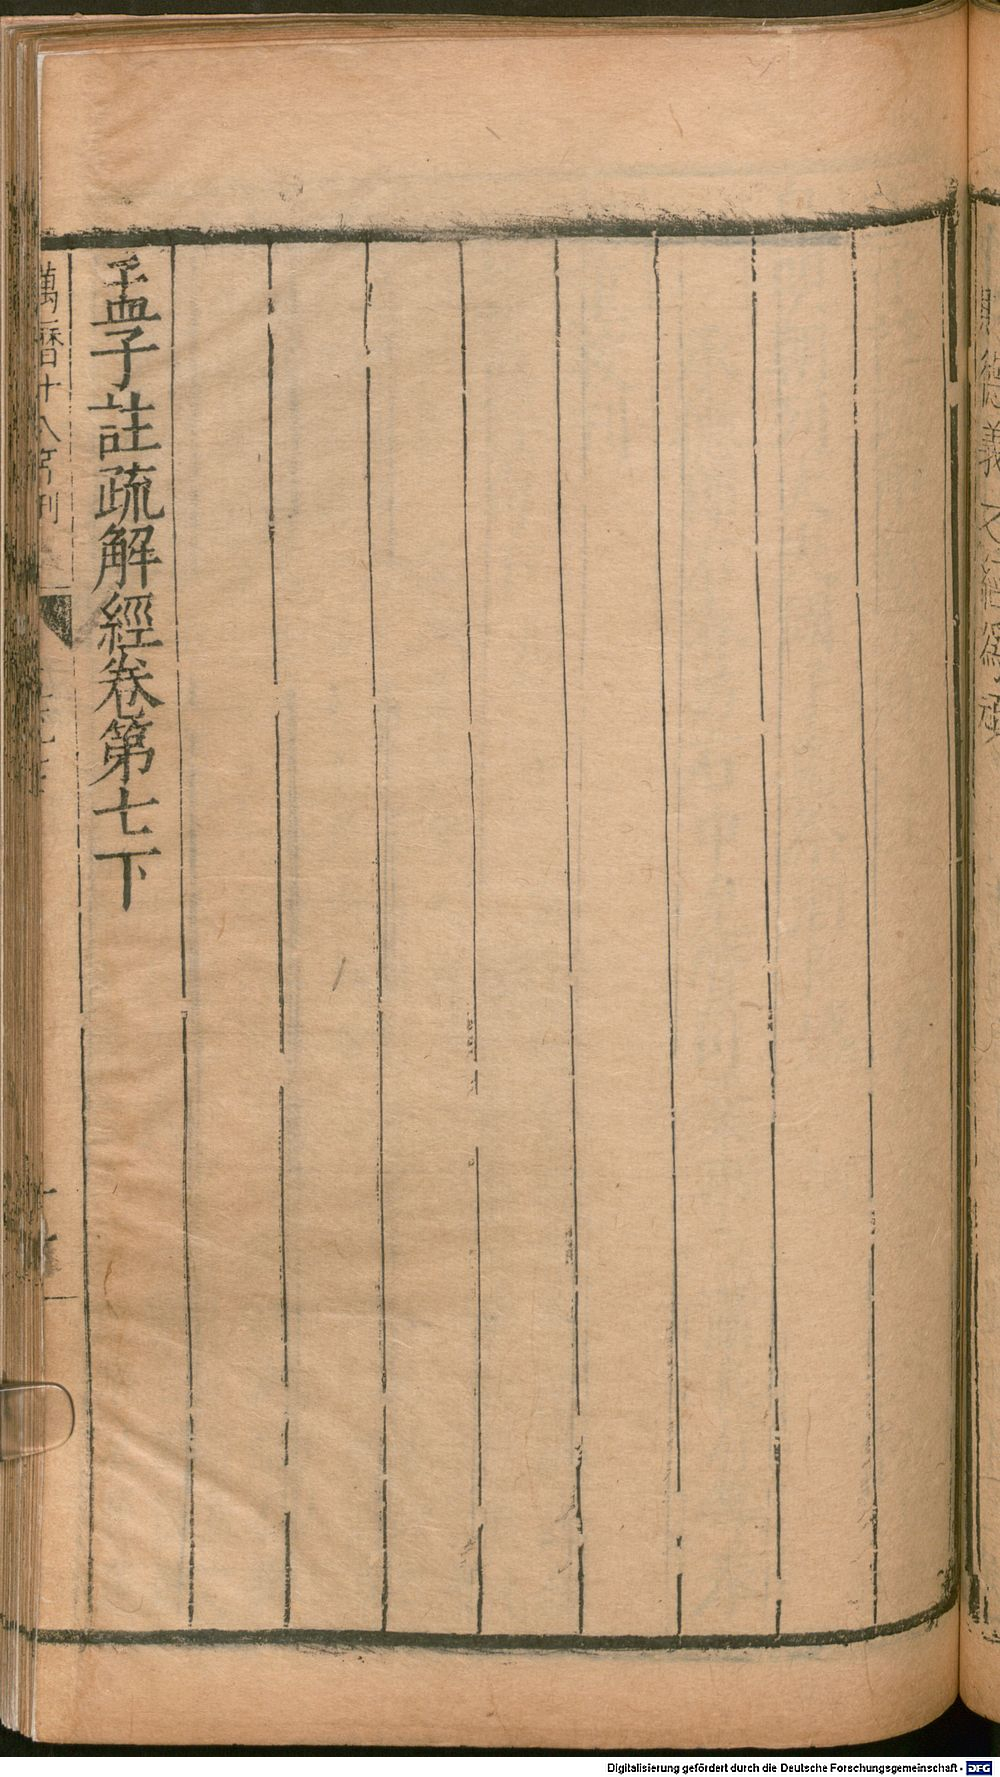 孟子註疏解經卷第七下
萬曆十八年刊
Digitalisierung gefördert durch die Deutsche Forschungsgemeinschaft - DFG